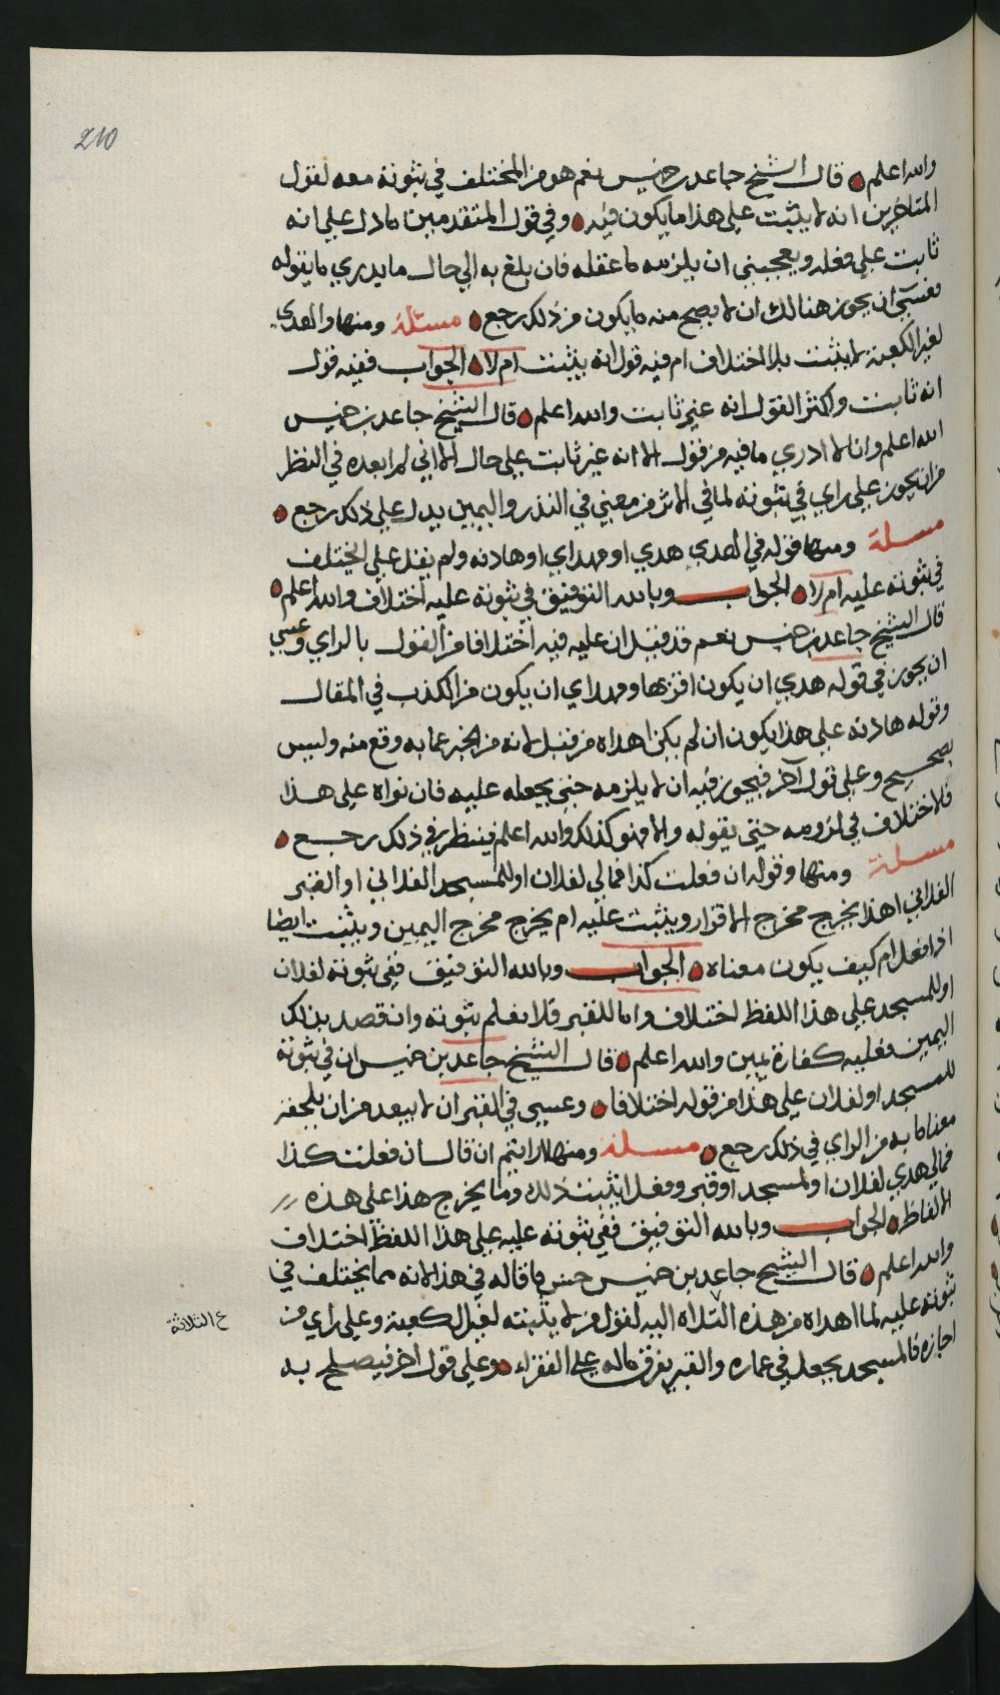 210
والله اعلم قال الشيخ جاعد بن خميس نعم هو من المختلف في ثبوته معه لقول
المتاخرين انه لا يثبت على هذا ما يكون فيه وفي قول المتقدمين ما دل على انه
ثابت على فعله ويعجبني ان يلزمه ما عقله فان بلغ به الى حال ما يدري ما يقوله
فعسى ان يجوز هنالك ان لا يصح منه ما يكون من ذلك رجع مسئلة ومنها والهدي
لغير الكعبة لا يثبت بلا اختلاف ام فيه قول انه يثبت ام لا الجواب ففيه قول
انه ثابت واكثر القول انه غير ثابت والله اعلم قال الشيخ جاعد بن خميس
الله اعلم وانا لا ادري ما فيه من قول الا انه غير ثابت على حال الا اني لم ابعده في النظر
من ان يجوز على راي في ثبوته لما في الاثر من معنى في النذر واليمين يدل على ذلك رجع
مسلة ومنها قوله في الهدي هدي او مهداي او هاديه ولم يقل علي المختلف
في ثبوته عليه ام لا الجواب وبالله التوفيق في ثبوته عليه اختلاف والله اعلم
قال الشيخ جاعد بن خميس نعم قد قيل ان عليه فيه اختلافا من القول بالراي وعسى
ان يجوز في قوله هدي ان يكون اقربها ومهداي ان يكون من الكذب في المقال
وقوله هاديه على هذا يكون ان لم يكن اهداه من قبل لانه من الخبر عما به وقع منه وليس
بصحيح وعلى قول آخر فيجوز فيه ان لا يلزمه حتى يجعله عليه فان نواه على هذا
فلا اختلاف في لزومه حتى يقوله والا فهو كذلك والله اعلم فينظر في ذلك رجع
مسلة ومنها وقوله ان فعلت كذا فمالي لفلان او للمسجد الفلاني او القبر
الفلاني اهذا يخرج مخرج الاقرار ويثبت عليه ام يخرج مخرج اليمين ويثبت ايضا
اذا فعل ام كيف يكون معناه الجواب وبالله التوفيق ففي ثبوته لفلان
او للمسجد على هذا اللفظ اختلاف واما للقبر فلا نعلم ثبوته وان قصد بذلك
اليمين فعليه كفارة يمين والله اعلم قال الشيخ جاعد بن خميس ان في ثبوته
للمسجد او لفلان على هذا من قوله اختلافا وعسى في القبر ان لا يبعد من ان يلحقه
معنا ما به من الراي في ذلك رجع مسلة ومنها ارايتم ان قال ان فعلت كذا
فمالي هدي لفلان او لمسجد او قبر وفعل ايثبت ذلك وما يخرج هذا على هذه
الالفاظ الجواب وبالله التوفيق ففي ثبوته عليه على هذا اللفظ اختلاف
والله اعلم قال الشيخ جاعد بن خميس حسن ما قاله في هذا لانه مما يختلف في
ثبوته عليه لما اهداه من هذه الثلاثه اليه لقول من لا يثبته لغير الكعبة وعلى راي من
ع الثلاثة
اجازه فالمسجد يجعل في عماره والقبر يفرق ماله على الفقراء وعلى قول اخر فيصلح به